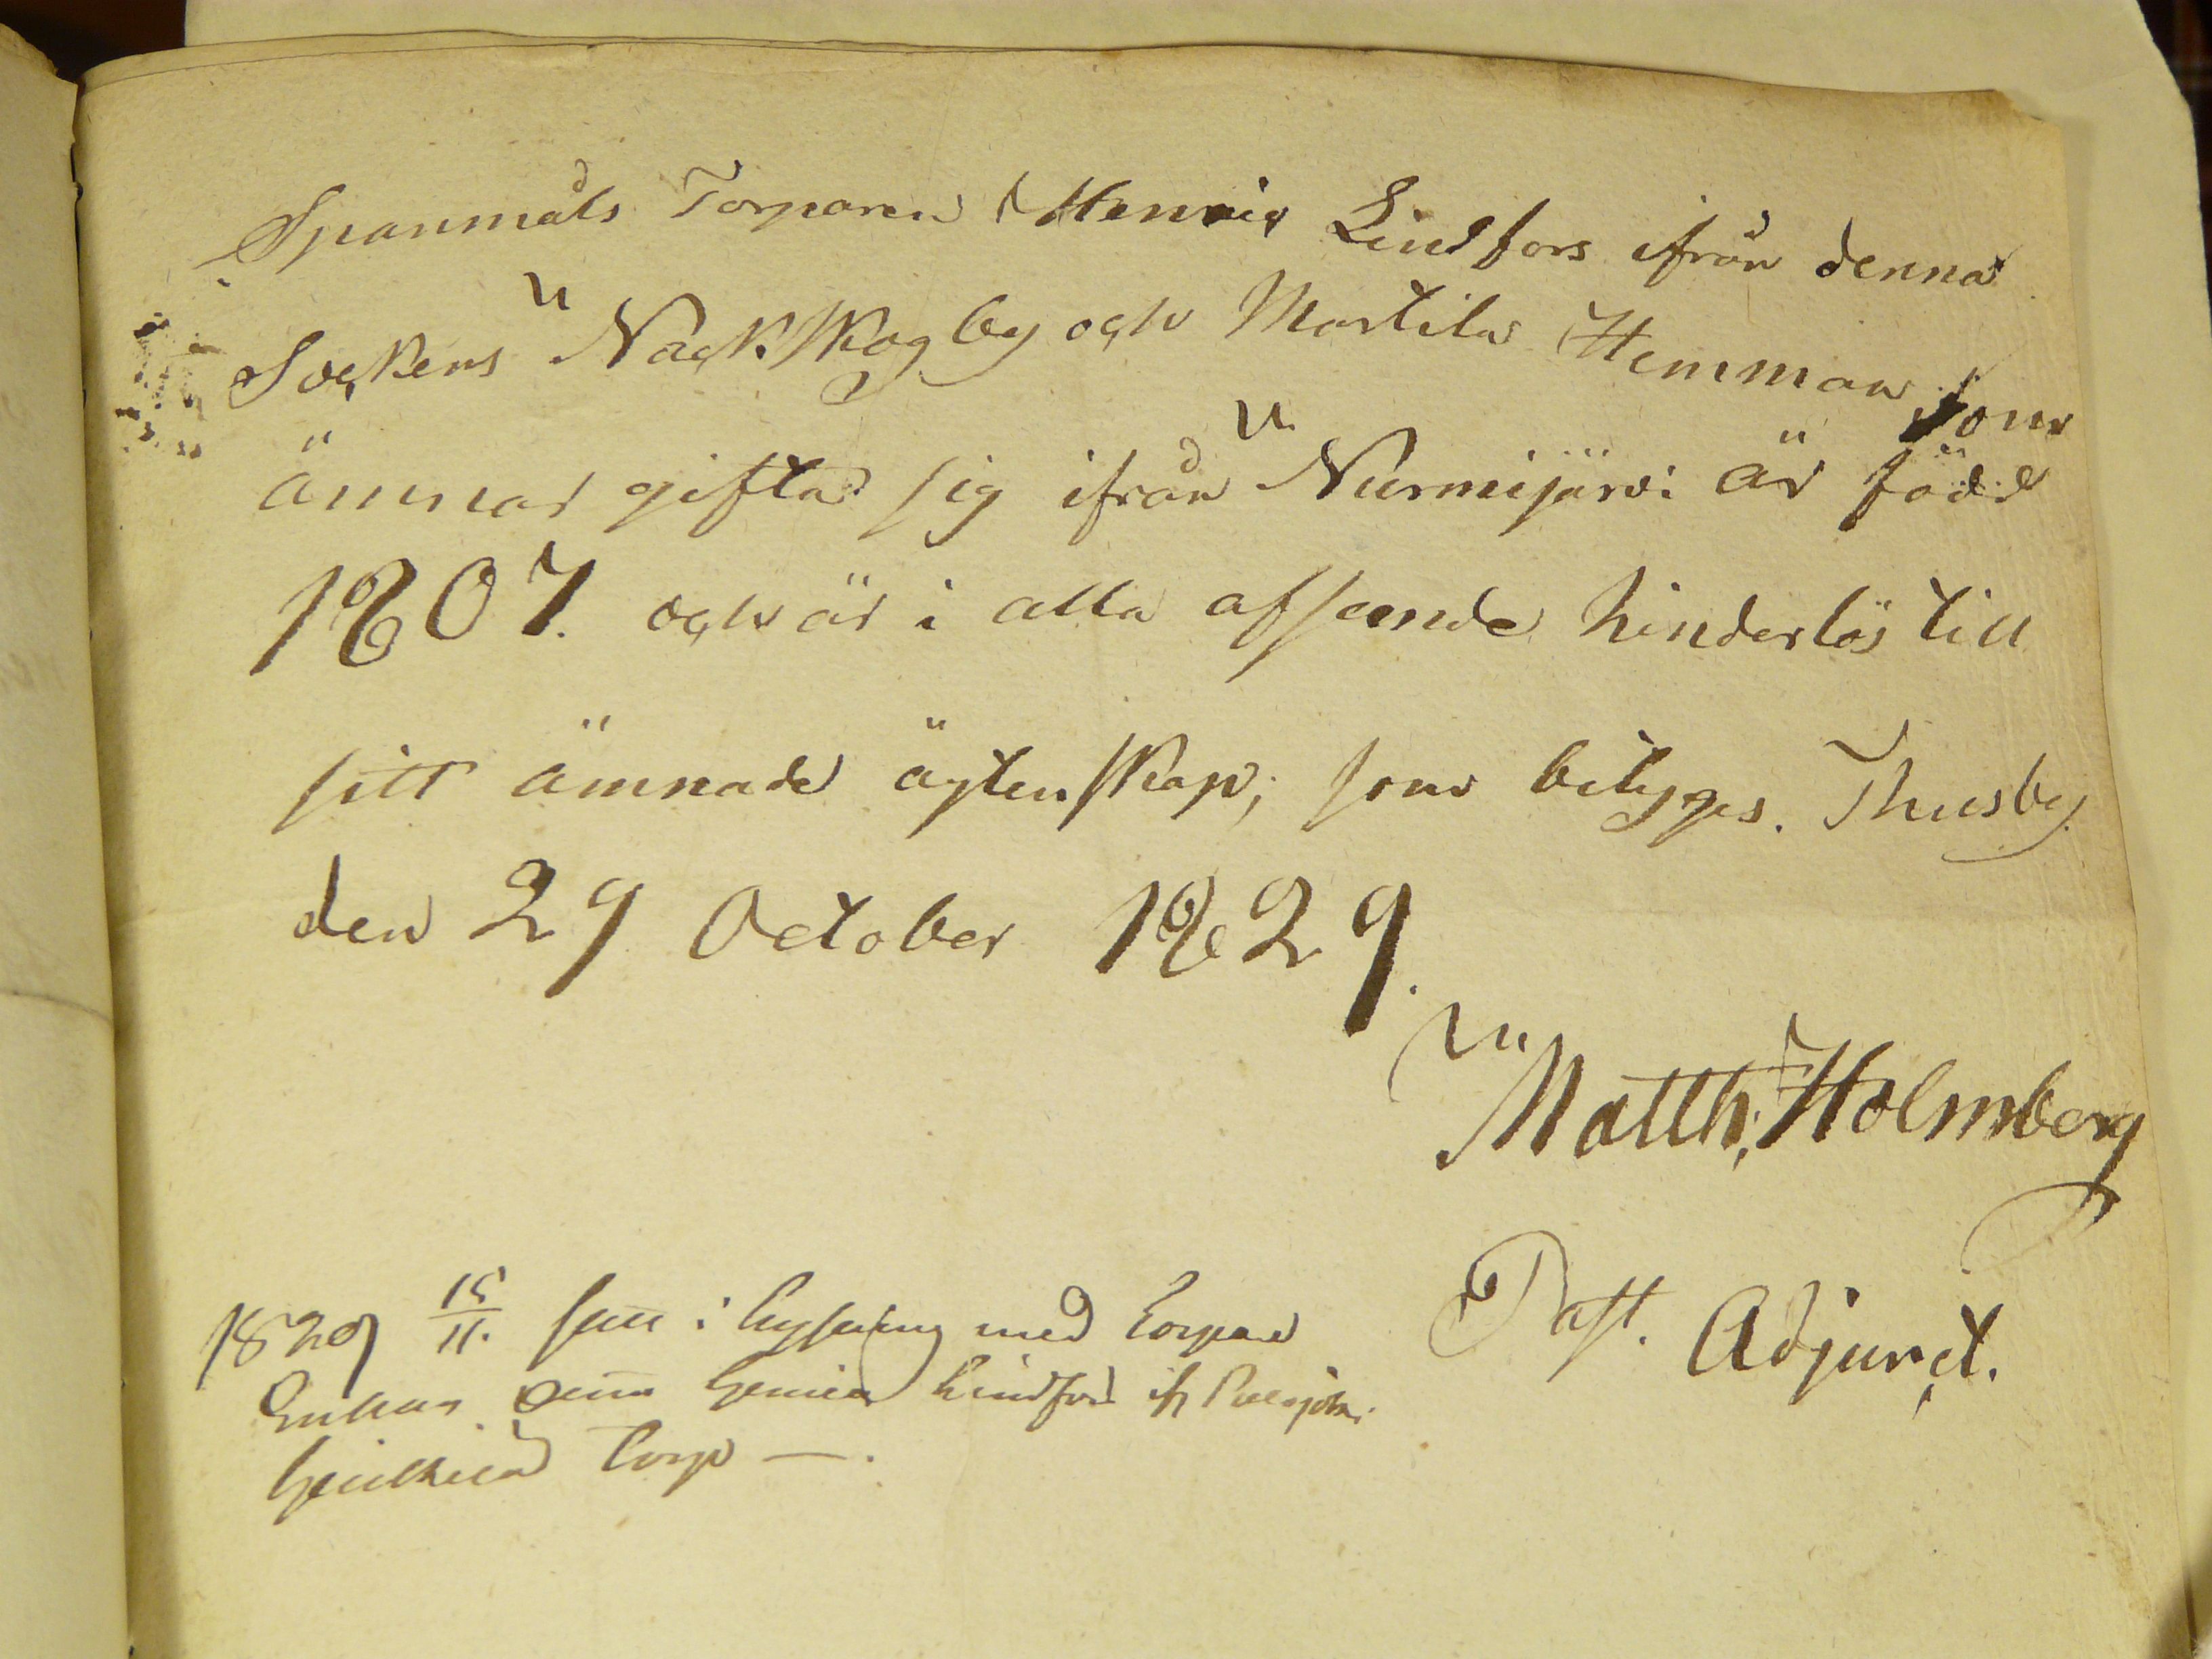 Spanmåls Torparen Henric Lindfors ifrån denna
Sockens Nackskog by och Martila Hemman som
ämnar gifta sig ifrån Nurmijärvi är född
1807. och är i alla afseende hinderlös till
sitt ämnade ägtenskap; som betyges. Thusby
den 29 October 1829.
Matth. Holmberg
Past. Adjunct.
1829 15/11. lysning med Torpare
Enkan Lindfors
Torp —.